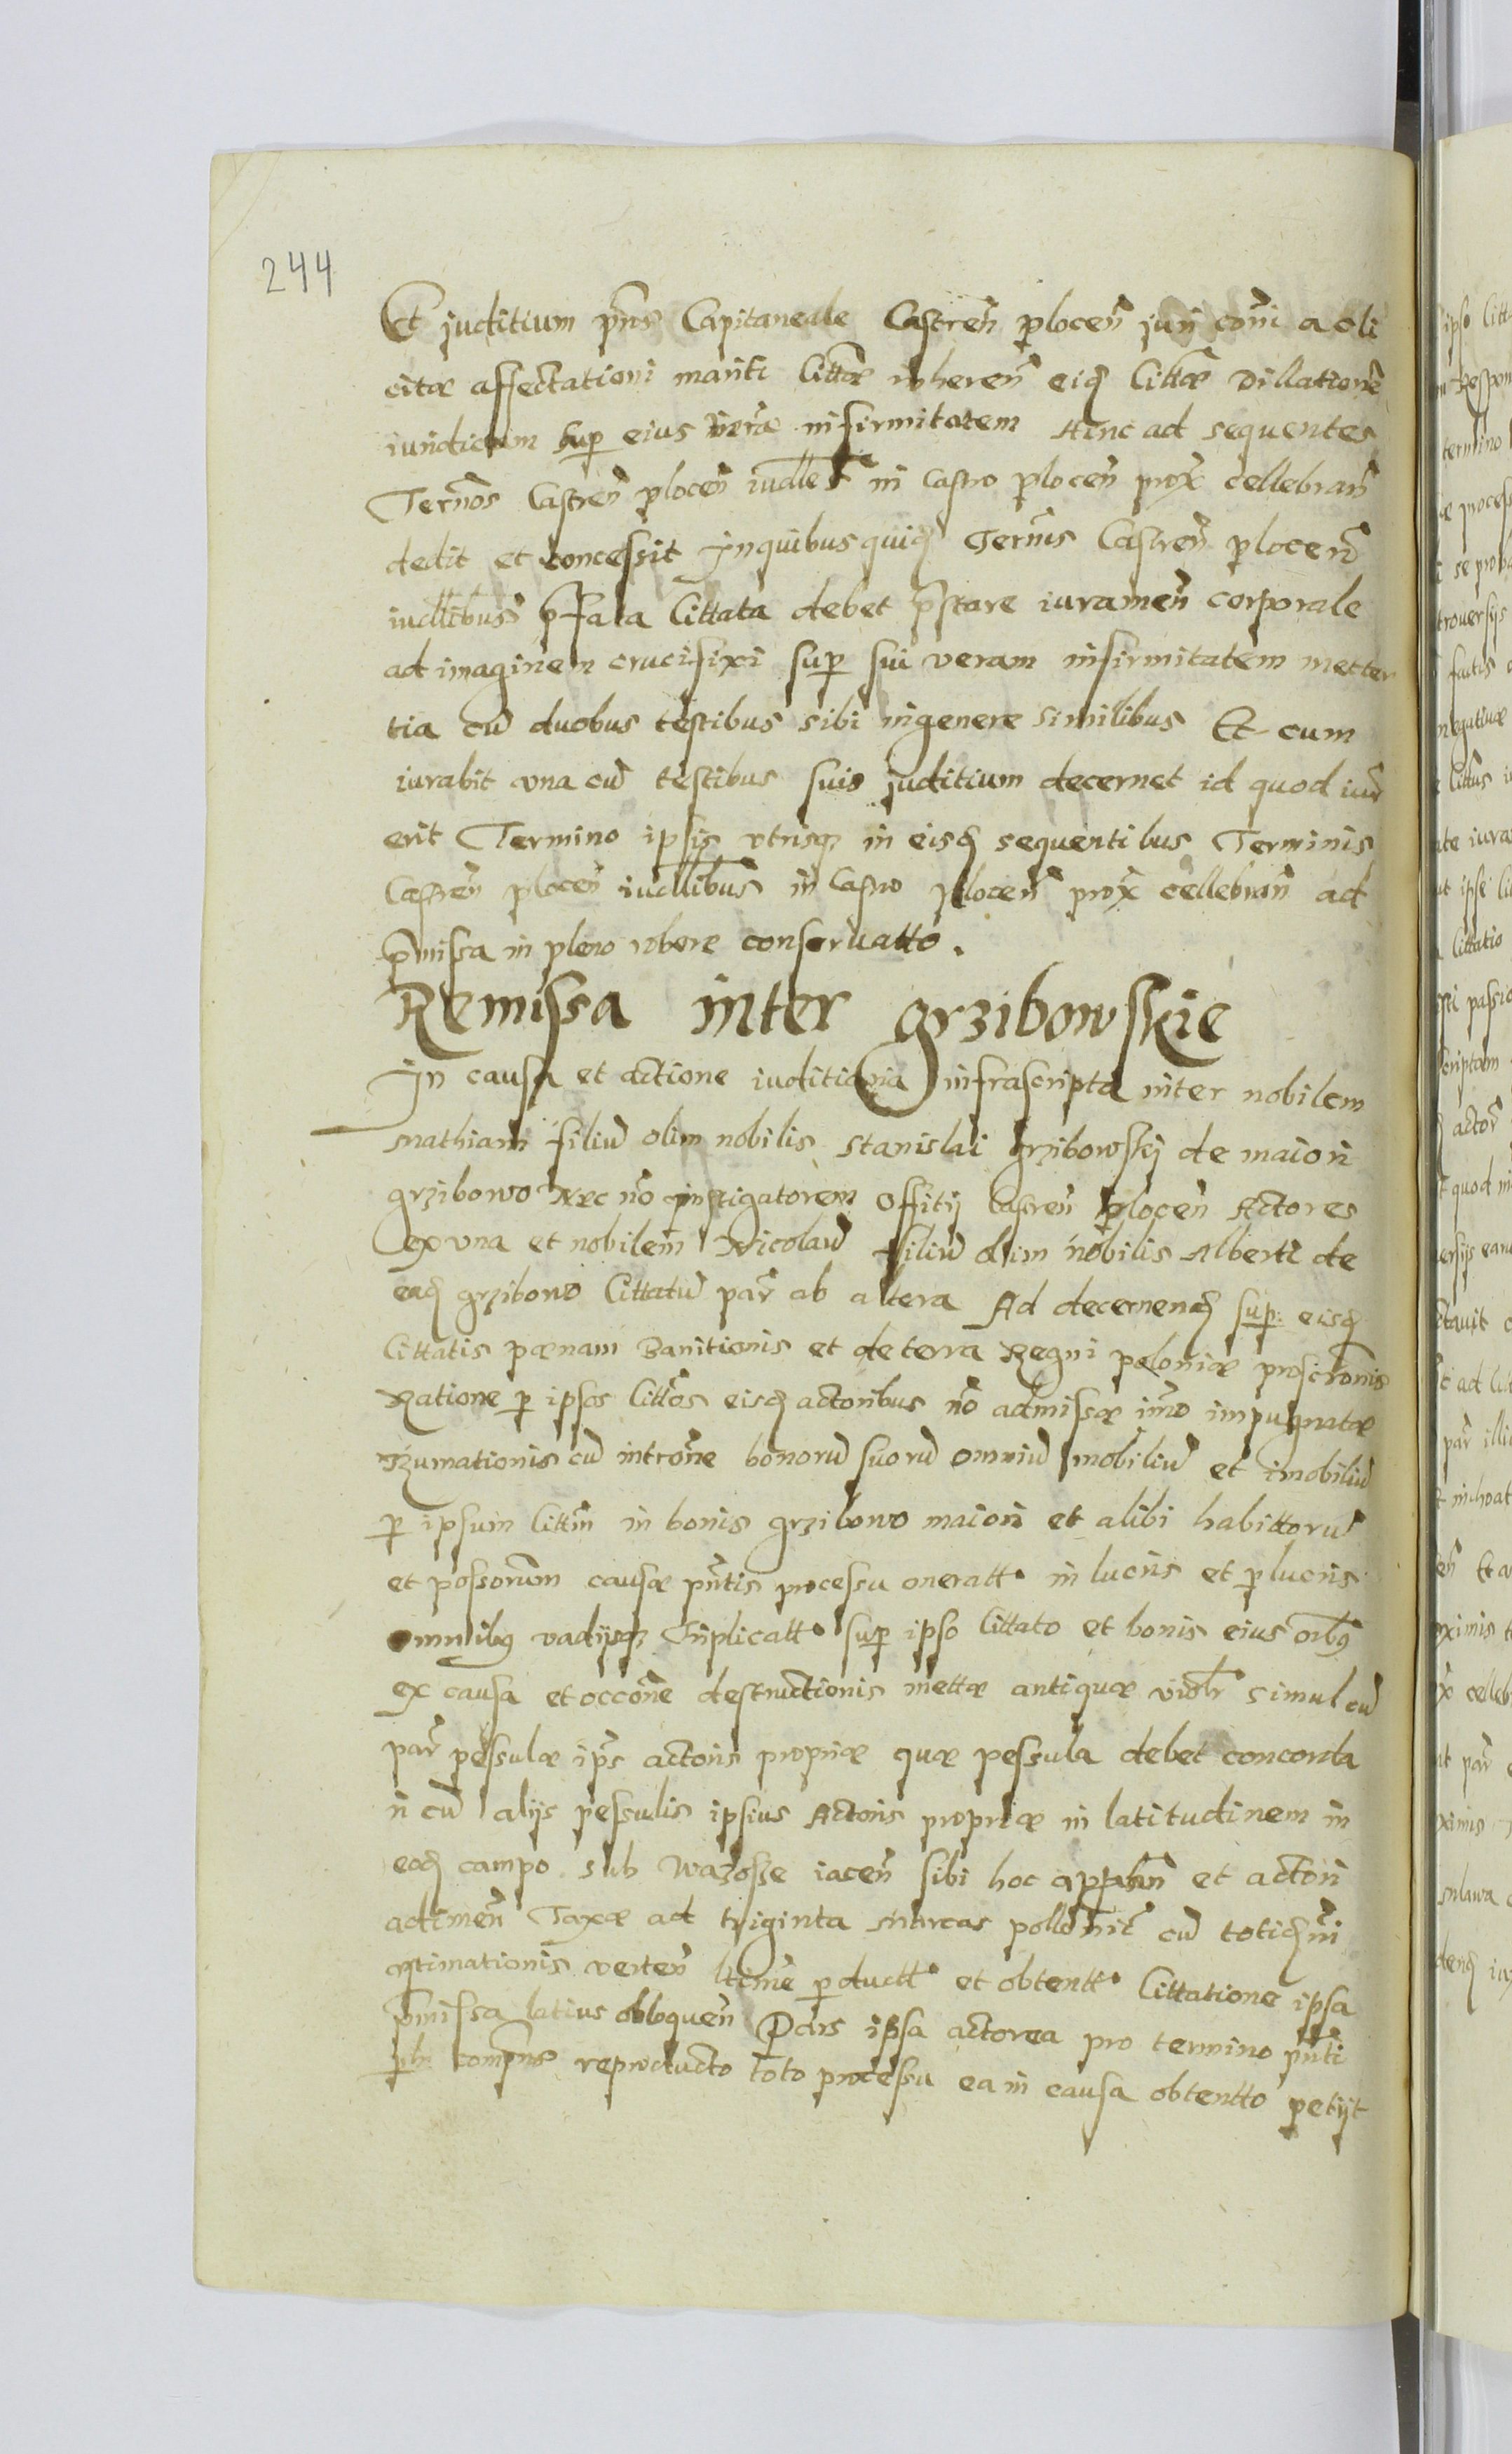 244
Et juditium pñs Capitaneale Castreñ ploceñ juri coñi ac li
citæ affectationi manti Citt̃æ inhereñ eiq̃ Citt̃æ Dillationẽ
iuridicam sup eius veræ infirmitatem Hinc ad sequentes
Term̃os Castreñ ploceñ iudlles in Castro ploceñ prox̃ cellebrañ
dedit et concessit Inquibusquiq̃ Termis Castreñ ploceñ
iudlibus p̃fata Cittata debet p̃stare iurameñ corporale
ad imaginem crucifixi sup sui veram infirmitatem metter
tia cũ duobus testibus sibi ingenere similibus Et cum
iurabit vna cũ testibus suis juditium decernet id quod iur̃
erit Termino ipsis vtrisq̃ in eisq̃ sequentibus Terminis
Castreñ ploceñ iudllibus in Castro ploceñ prox̃ cellebrañ ad
p̃missa in pleno robore conseruatto.
Remissa inter grzibowskie
In causa et actione iuditiaria infrascripta inter nobilem
Mathiam filiũ olim nobilis Stanislai grzibowskj de maiori
grzibowo Nec nõ instigatorem Offitij Castreñ ploceñ Actores
ex vna et nobilem Nicolaũ filiũ olim nobilis Alberti de
eaq̃ grzibowo Cittatũ par̃ ab altera Ad decernenq̃ sup eisq̃
Cittatis pænam Banitionis et de terra Regni poloniæ proscrõnis
Ratione p ipsos Citt̃os eisq̃ actoribus nõ admissæ imõ impugnatæ
Rumationis cũ intrõne bonorũ suorũ omniũ mobiliũ et imobiliũ
p ipsum Citt̃m in bonis grzibowo maiori et alibi habittorũ
et possorum causæ pñtis processu oneratt in lucris et p lucris
omnibq vadijsq̃ Triplicatt sup ipso Cittato et bonis eius oib̃q
ex causa et occõne destructionis mettæ antiquæ violr̃ simul cũ
par̃ pessulæ ip̃s actoris propriæ quæ pessula debet concorda
ri cũ alijs pessulis ipsius Actoris propriæ in latitudinem in
eoq̃ campo sub wazosze iaceñ sibi hoc et actori
adimeñ Taxæ ad triginta Marcas pollonic̃ cũ totiq̃mi
æstimationis verteñ ltime p ductt et obtentt Cittatione ipsa
p̃missa latius obloqueñ Pars ipsa actorea pro termino pñti
plr̃ compñs reproducto toto processu ea in causa obtentto petijt